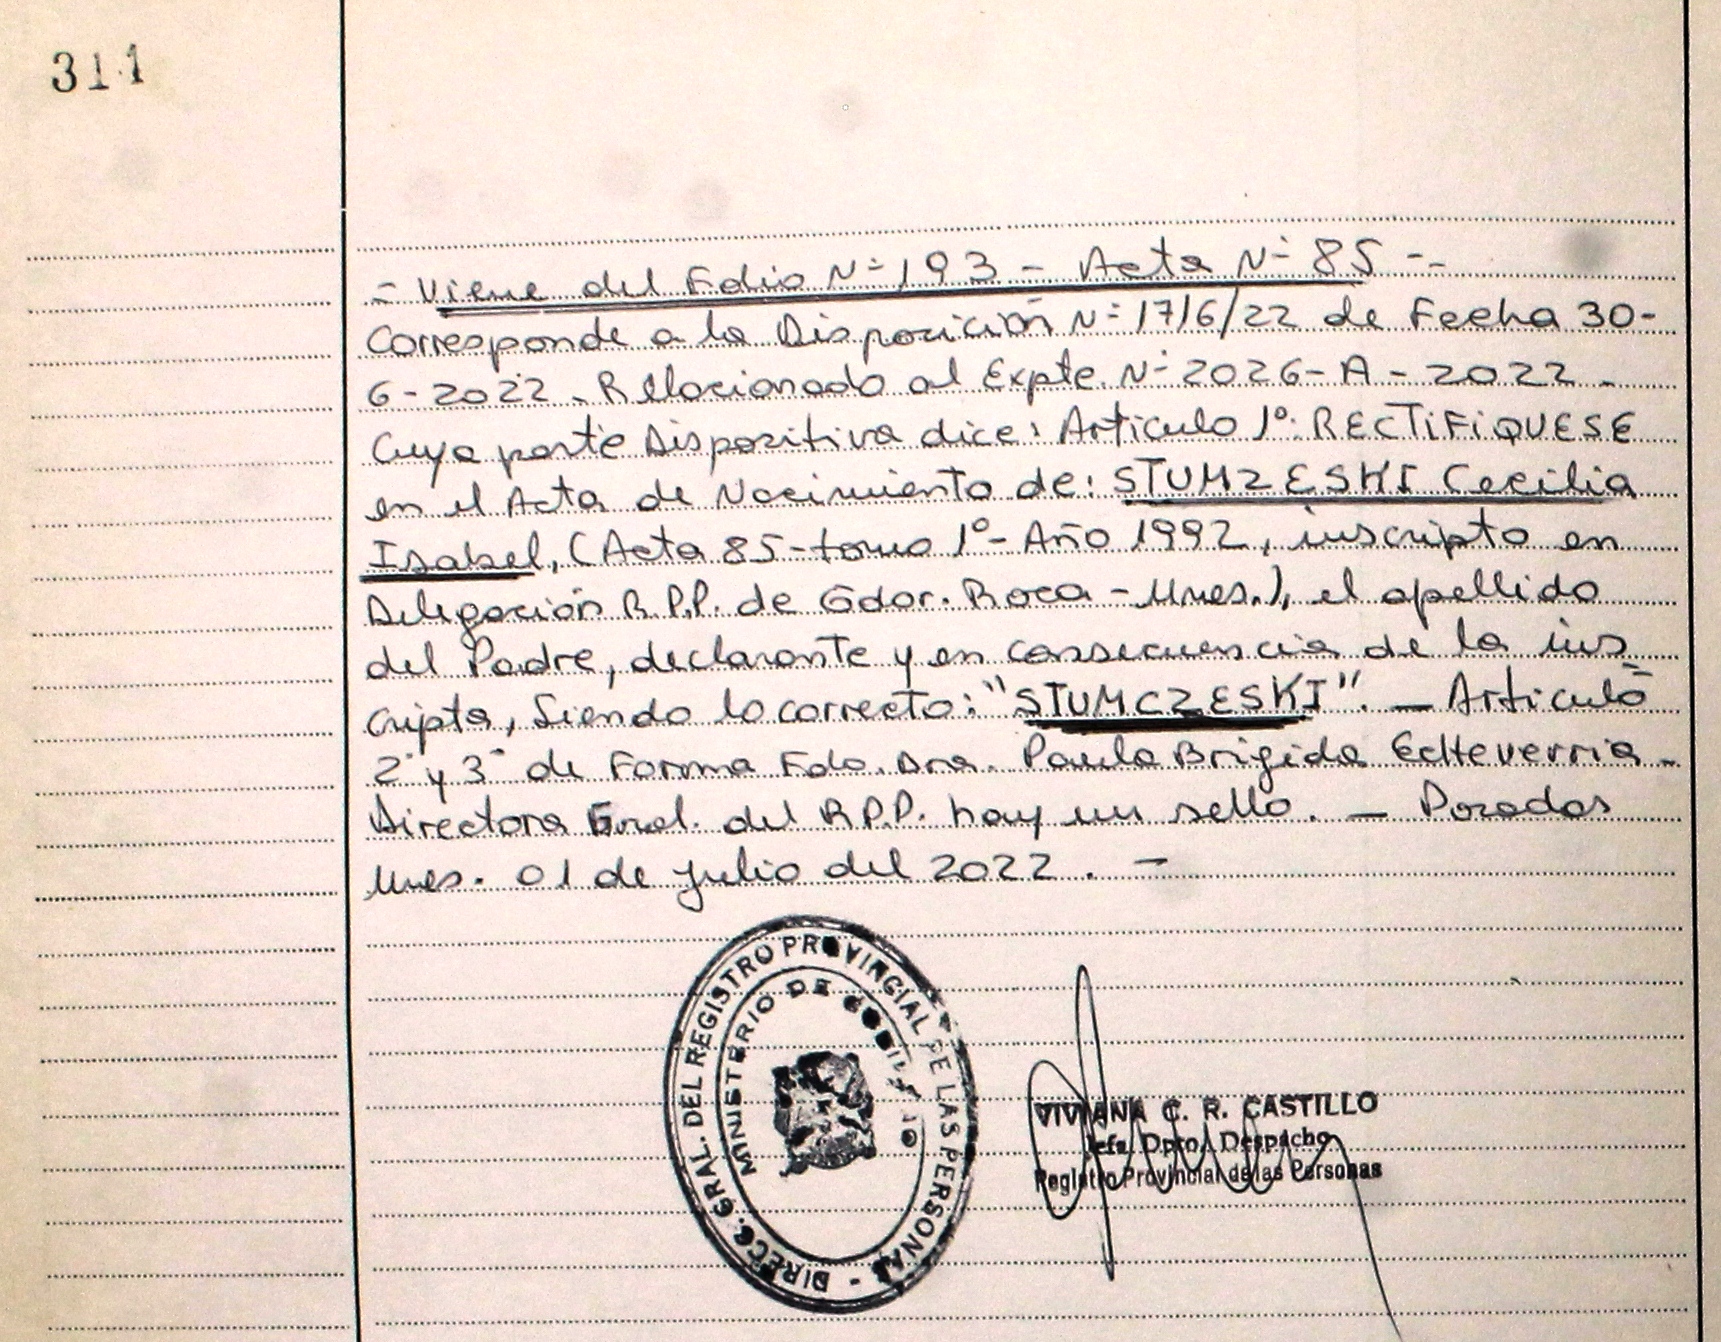 311
- Viene del Folio Nº 193 - Acta Nº 85 --
Corresponde a la Disposición Nº 1716/22 de Fecha 30-
6-2022. Rellacionado al Expte. Nº 2026-A-2022.
Cuya parte Dispositiva dice: Articulo 1º: RECTIFIQUESE
en el Acta de Nacimiento de: STUMZESKI Cecilia
Isabel, (Acta 85-tomo 1º- Año 1992, inscripto en
Delegación R.P.P. de Gdor. Roca - Mnes.), el apellido
del Padre, declarante y en consecuencia de la ins
cripta, Siendo lo correcto: "STUMCZESKI". - Articulo
2º y 3º de Forma Fdo. Dra. Paula Brigida Echeverria -
Directora Gral. del R.P.P. hay un sello. - Posadas
Mnes. 01 de julio del 2022. -
DIRECC. GRAL. DEL REGISTRO PROVINCIAL DE LAS PERSONAS -
MINISTERIO DE GOBIERNO
VIVIANA C. R. CASTILLO
Jefa Dpto. Despacho
Registro Provincial de las Personas